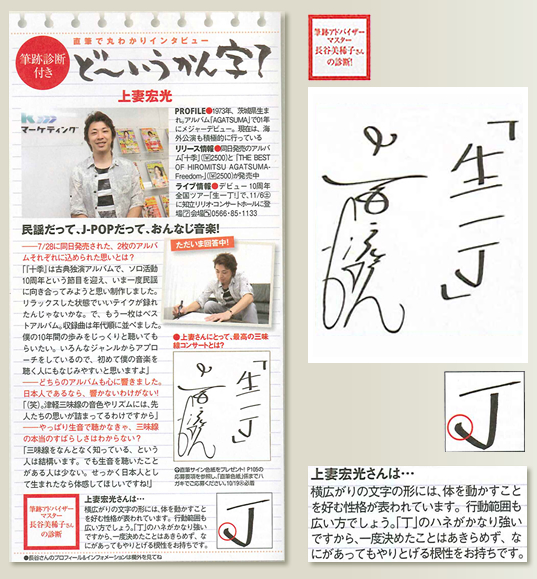 直筆で丸わかりインタビュー
筆跡診断
付き
ど〜いうかん字?
上妻宏光
マーケティング
PROFILE●1973年、茨城県生ま
れ。アルバム「AGATSUMA」で'01年
にメジャーデビュー。現在は、海
外公演も積極的に行っている
リリース情報●同日発売のアルバ
ム「十季」(¥2500)と「THE BEST
OF HIROMITSU AGATSUMA-
Freedom-」(¥2500)が発売中
ライブ情報●デビュー10周年
全国ツアー「生一丁!」で、11/6㊏
に知立リリオ・コンサートホールに登
場 会場 0566・85・1133
民謡だって、J-POPだって、おんなじ音楽!
――7/28に同日発売された、2枚のアルバ
ムそれぞれに込められた思いとは?
「『十季』は古典独演アルバムで、ソロ活動
10周年という節目を迎え、いま一度民謡
に向き合ってみようと思い制作しました。
リラックスした状態でいいテイクが録れ
たんじゃないかな。で、もう一枚はベス
トアルバム。収録曲は年代順に並べました。
僕の10年間の歩みをじっくりと聴いても
らいたい。いろんなジャンルからアプロ
ーチをしているので、初めて僕の音楽を
聴く人にもなじみやすいと思いますよ」
――どちらのアルバムも心に響きました。
日本人であるなら、響かないわけがない!
「(笑)。津軽三味線の音色やリズムには、先
人たちの思いが詰まってるわけですから」
――やっぱり生音で聴かなきゃ、三味線
の本当のすばらしさはわからない?
「三味線をなんとなく知っている、という
人は結構います。でも生音を聴いたこと
がある人は少ない。せっかく日本人とし
て生まれたなら体感してほしいですね!」
ただいま回答中!
●上妻さんにとって、最高の三味
線コンサートとは?
「生一丁」
直筆サイン色紙をプレゼント! P105の
筆跡アドバイザー
マスター
長谷美稀子さん
の診断
上妻宏光さんは…
横広がりの文字の形には、体を動かすこと
を好む性格が表われています。行動範囲も
広い方でしょう。「丁」のハネがかなり強い
ですから、一度決めたことはあきらめず、な
にがあってもやりとげる根性をお持ちです。
丁
●長谷さんのプロフィール&インフォメーションは欄外を見てね
筆跡アドバイザー
マスター
長谷美稀子さん
の診断!
「生一丁」
丁
上妻宏光さんは…
横広がりの文字の形には、体を動かすこと
を好む性格が表われています。行動範囲も
広い方でしょう。「丁」のハネがかなり強い
ですから、一度決めたことはあきらめず、な
にがあってもやりとげる根性をお持ちです。